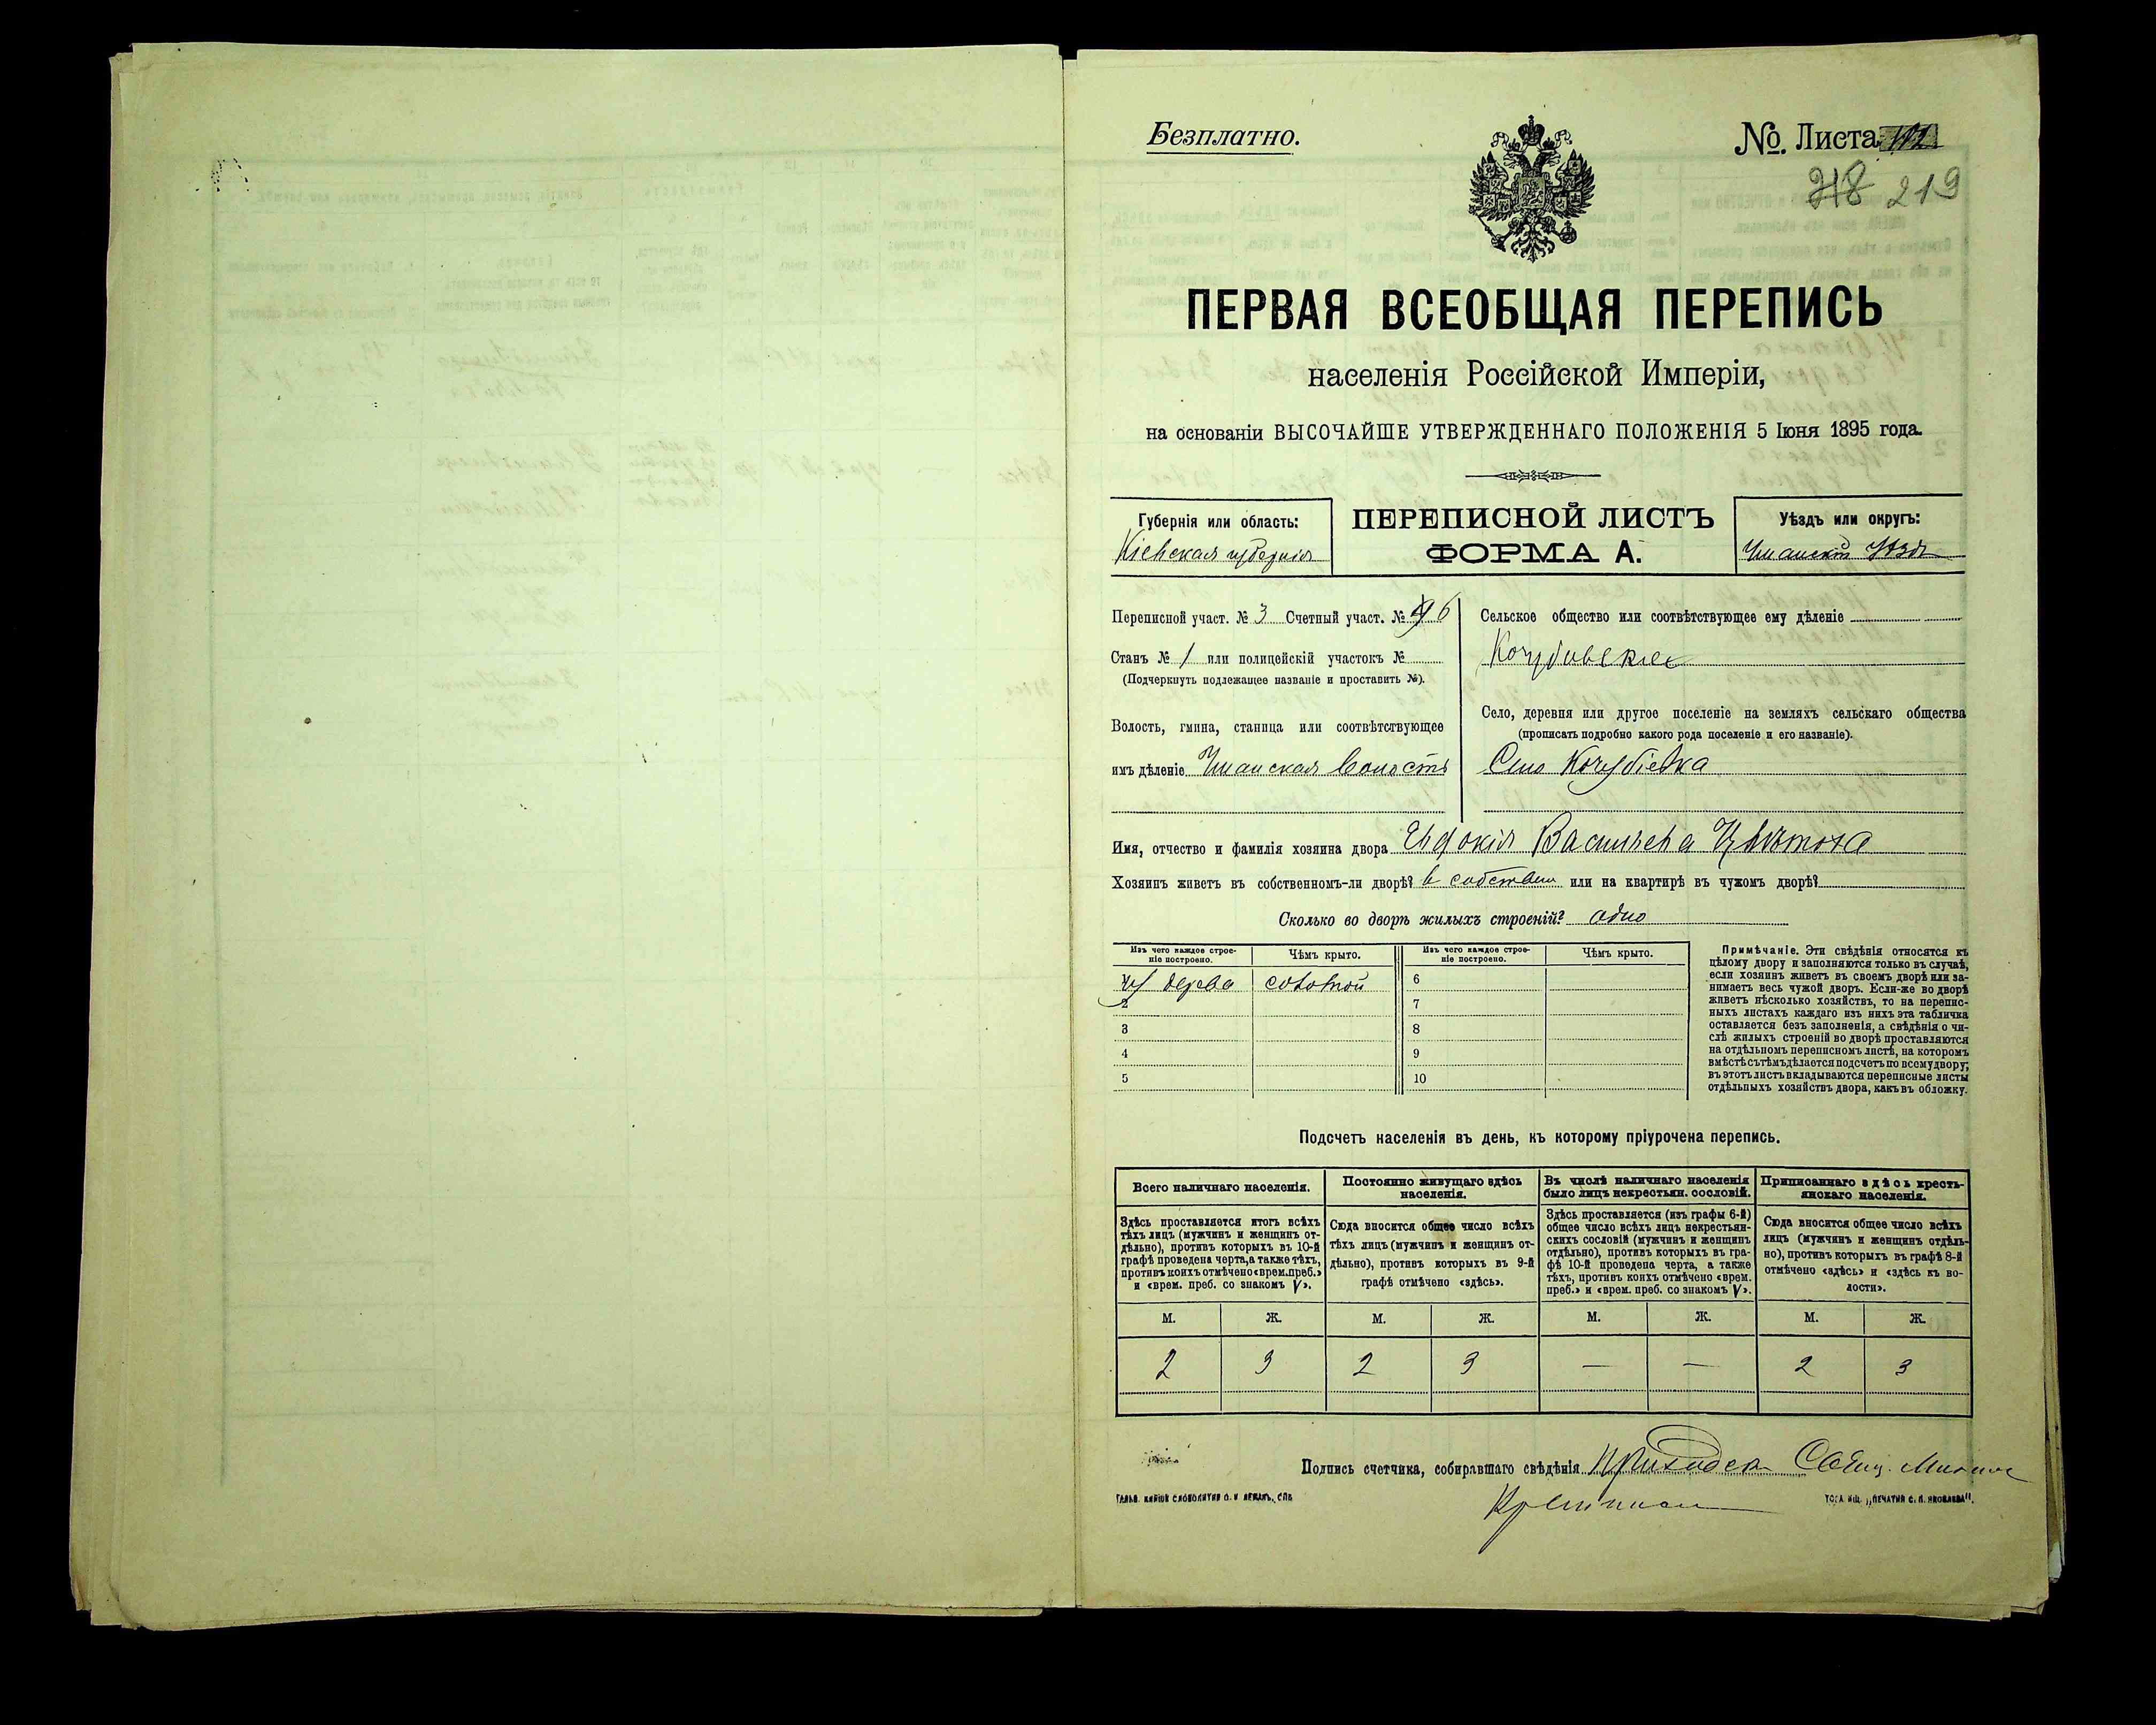 Безплатно.
№ Листа 112
218 219
ПЕРВАЯ ВСЕОБЩАЯ ПЕРЕПИСЬ
населенія Россійской Имперіи,
на основаніи ВЫСОЧАЙШЕ УТВЕРЖДЕННАГО ПОЛОЖЕНІЯ 5 Іюня 1895 года.
Губернія или область:
Кіевская губернія
ПЕРЕПИСНОЙ ЛИСТЪ
ФОРМА А.
Уѣздъ или округъ:
Уманскій Уѣздъ
Переписной участ. № 3 Счетный участ. № 6
Станъ № 1 или полицейскій участокъ №
(Подчеркнуть подлежащее названіе и проставить №).
Волость, гмина, станица или соотвѣтствующее
имъ дѣленіе Уманская Волость
Сельское общество или соотвѣтствующее ему дѣленіе
Кочубіевское
Село, деревня или другое поселеніе на земляхъ сельскаго общества
(прописать подробно какого рода поселеніе и его названіе).
Село Кочубіевка
Имя, отчество и фамилія хозяина двора Евдокія Васильева
Хозяинъ живетъ въ собственномъ-ли дворѣ? в собствен или на квартирѣ въ чужомъ дворѣ?
Сколько во дворѣ жилыхъ строеній? одно
Изъ чего каждое строеніе построено.
Чѣмъ крыто.
Изъ чего каждое строеніе построено.
Чѣмъ крыто.
из дерева соломой 6
2 7
3 8
4 9
5 10
Примѣчаніе. Эти свѣдѣнія относятся къ
цѣлому двору и заполняются только въ случаѣ,
если хозяинъ живетъ въ своемъ дворѣ или за-
нимаетъ весь чужой дворъ. Если-же во дворѣ
живетъ нѣсколько хозяйствъ, то на перепис-
ныхъ листахъ каждаго изъ нихъ эта табличка
оставляется безъ заполненія, а свѣдѣнія о чи-
слѣ жилыхъ строеній во дворѣ проставляются
на отдѣльномъ переписномъ листѣ, на которомъ
вмѣстѣ съ тѣмъ дѣлается подсчетъ по всему двору;
въ этотъ листъ вкладываются переписные листы
отдѣльныхъ хозяйствъ двора, какъ въ обложку.
Подсчетъ населенія въ день, къ которому пріурочена перепись.
Всего наличнаго населенія.
Здѣсь проставляется итогъ всѣхъ
тѣхъ лицъ (мужчинъ и женщинъ от-
дѣльно), противъ которыхъ въ 10-й
графѣ проведена черта, а также тѣхъ,
противъ коихъ отмѣчено «врем. преб.»
и «врем. преб. со знакомъ V».
Постоянно живущаго здѣсь
населенія.
Сюда вносится общее число всѣхъ
тѣхъ лицъ (мужчинъ и женщинъ от-
дѣльно), противъ которыхъ въ 9-й
графѣ отмѣчено «здѣсь».
Въ числѣ наличнаго населенія
было лицъ некрестьян. сословій.
Здѣсь проставляется (изъ графы 6-й)
общее число всѣхъ лицъ некрестьян-
скихъ сословій (мужчинъ и женщинъ
отдѣльно), противъ которыхъ въ гра-
фѣ 10-й проведена черта, а также
тѣхъ, противъ коихъ отмѣчено «врем.
преб.» и «врем. преб. со знакомъ V».
Приписаннаго здѣсь кресть-
янскаго населенія.
Сюда вносится общее число всѣхъ
лицъ (мужчинъ и женщинъ отдѣль-
но), противъ которыхъ въ графѣ 8-й
отмѣчено «здѣсь» и «здѣсь къ во-
лости».
М. Ж. М. Ж. М. Ж. М. Ж.
2 3 2 3 — — 2 3
Подпись счетчика, собиравшаго свѣдѣнія